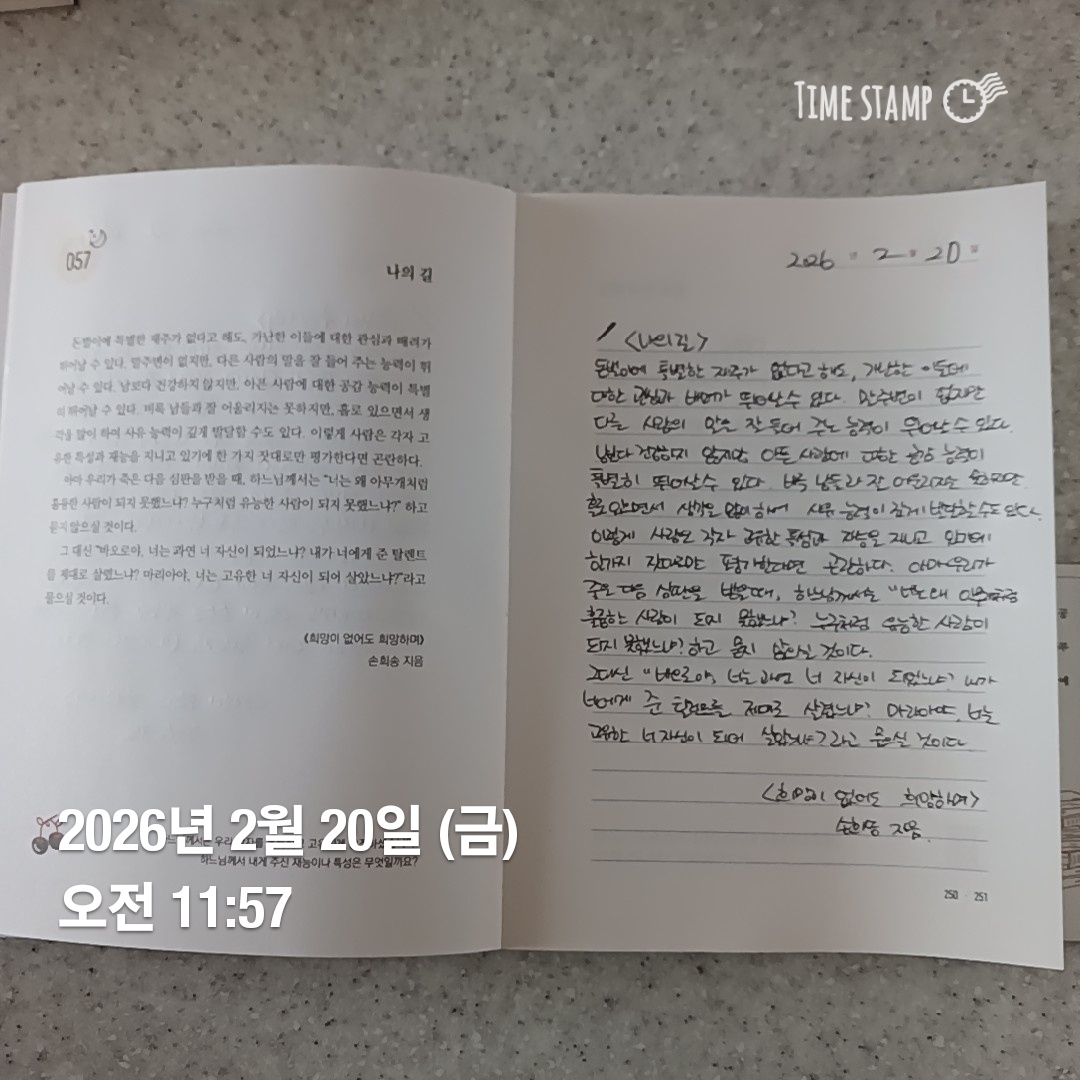 TIME STAMP
057
나의 길
돈벌이에 특별한 재주가 없다고 해도, 가난한 이들에 대한 관심과 배려가
뛰어날 수 있다. 말주변이 없지만, 다른 사람의 말을 잘 들어 주는 능력이 뛰
어날 수 있다. 남보다 건강하지 않지만, 아픈 사람에 대한 공감 능력이 특별
히 뛰어날 수 있다. 비록 남들과 잘 어울리지는 못하지만, 홀로 있으면서 생
각을 많이 하여 사유 능력이 깊게 발달할 수도 있다. 이렇게 사람은 각자 고
유한 특성과 재능을 지니고 있기에 한 가지 잣대로만 평가한다면 곤란하다.
아마 우리가 죽은 다음 심판을 받을 때, 하느님께서는 "너는 왜 아무개처럼
훌륭한 사람이 되지 못했느냐? 누구처럼 유능한 사람이 되지 못했느냐?" 하고
묻지 않으실 것이다.
그 대신 "바오로야, 너는 과연 너 자신이 되었느냐? 내가 너에게 준 탈렌트
를 제대로 살렸느냐? 마리아야, 너는 고유한 너 자신이 되어 살았느냐?"라고
물으실 것이다.
《희망이 없어도 희망하며》
손희송 지음
께서는 우리
하느님께서 내게 주신 재능이나 특성은 무엇일까요?
2026년 2월 20일 (금)
오전 11:57
2026 년 2 월 20 일
<나의 길>
돈벌이에 특별한 재주가 없다고 해도, 가난한 이들에
대한 관심과 배려가 뛰어날 수 있다. 말주변이 없지만
다른 사람의 말을 잘 들어 주는 능력이 뛰어날 수 있다.
남보다 건강하지 않지만 아픈 사람에 대한 공감 능력이
특별히 뛰어날 수 있다. 비록 남들과 잘 어울리지는 못하지만
홀로 있으면서 생각을 많이 하여 사유 능력이 깊게 발달할 수도 있다.
이렇게 사람은 각자 고유한 특성과 재능을 지니고 있기에
한가지 잣대로만 평가한다면 곤란하다. 아마 우리가
죽은 다음 심판을 받을때, 하느님께서는 "너는 왜 아무개처럼
훌륭한 사람이 되지 못했느냐? 누구처럼 유능한 사람이
되지 못했느냐? 하고 묻지 않으실 것이다.
그대신 "바오로야, 너는 과연 너 자신이 되었느냐? 내가
너에게 준 탈렌트를 제대로 살렸느냐? 마리아야, 너는
고유한 너 자신이 되어 살았느냐? 라고 물으실 것이다
<희망이 없어도 희망하며>
손희송 지음.
250 251